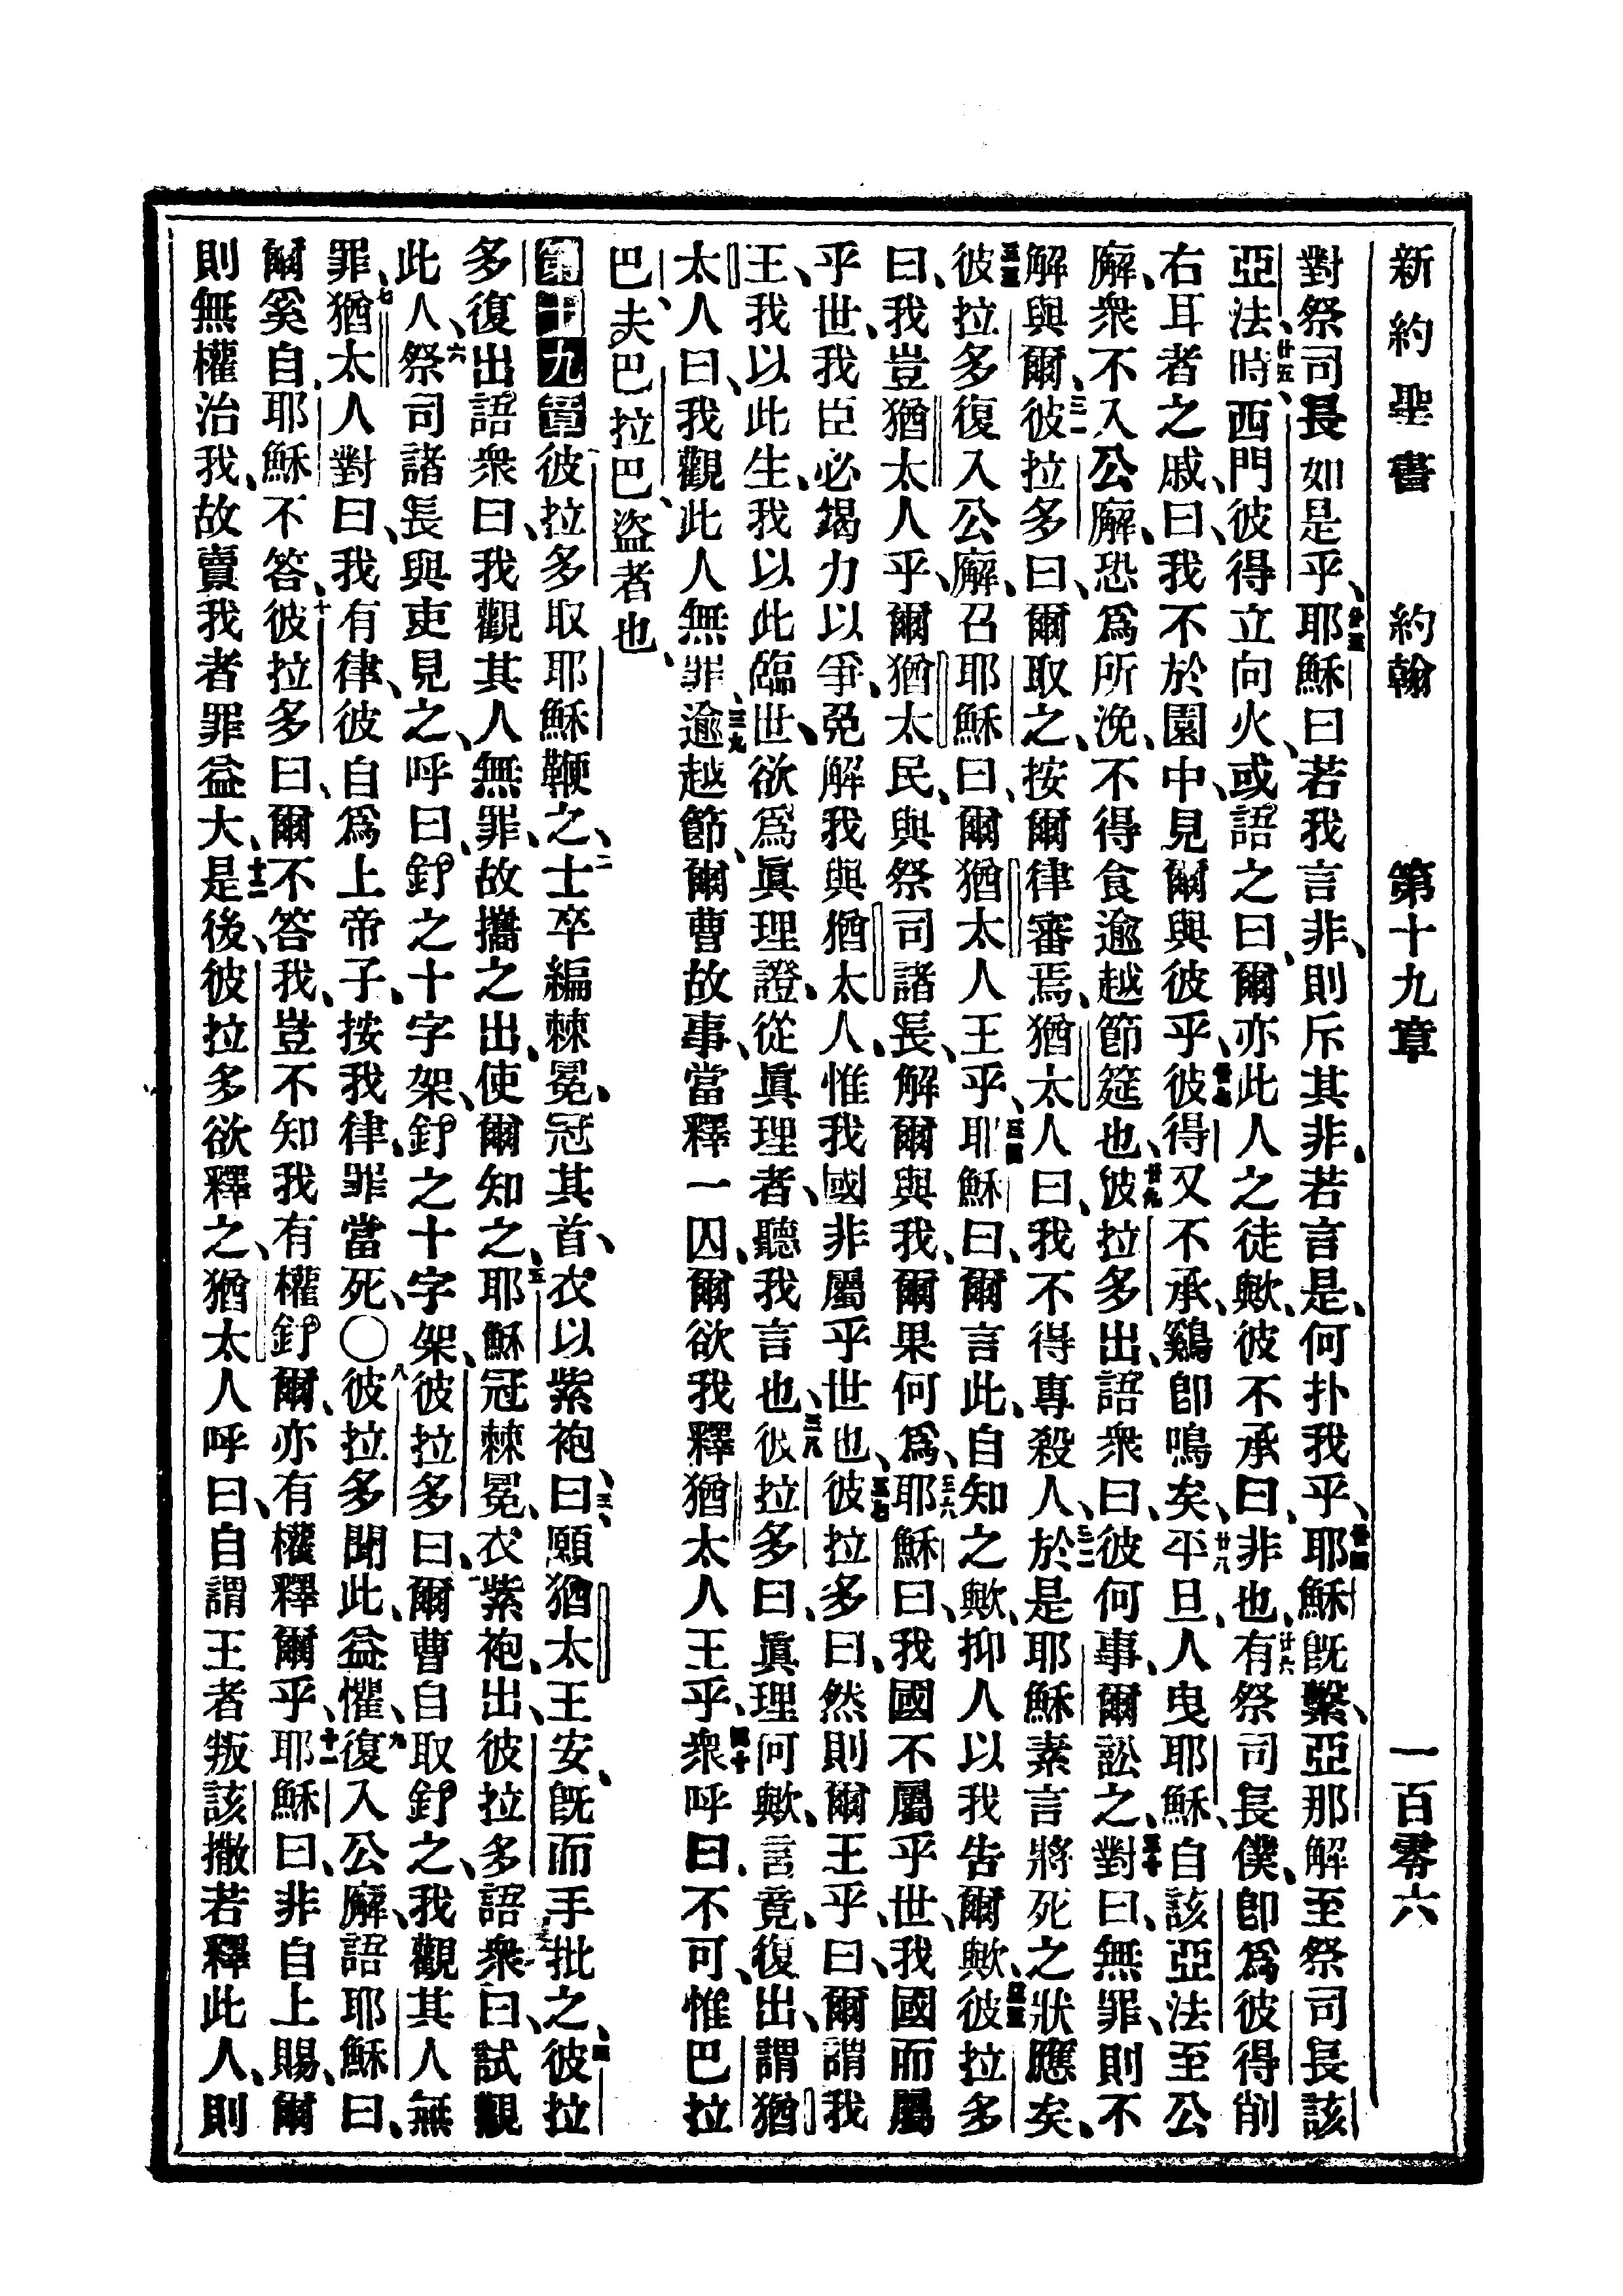 新約聖書 約翰 第十九章 一百零六
對祭司長如是乎、廿三耶穌曰若我言非、則斥其非、若言是、何扑我乎、廿四耶穌旣繫、亞那解至祭司長該
亞法、廿五時、西門彼得立向火、或語之曰、爾亦此人之徒歟、彼不承曰、非也、廿六有祭司長僕、卽爲彼得削
右耳者之戚、曰、我不於園中、見爾與彼乎、廿七彼得又不承、鷄卽鳴矣、廿八平旦、人曳耶穌、自該亞法至公
廨、衆不入公廨、恐爲所浼、不得食逾越節筵也、廿九彼拉多出、語衆曰、彼何事、爾訟之、三十對曰、無罪、則不
解與爾、三一彼拉多曰、爾取之、按爾律審焉、猶太人曰、我不得專殺人、三二於是耶穌素言將死之狀應矣、
三三彼拉多復入公廨、召耶穌曰、爾猶太人王乎、三四耶穌曰、爾言此、自知之歟、抑人以我告爾歟、三五彼拉多
曰、我豈猶太人乎、爾猶太民、與祭司諸長、解爾與我、爾果何爲、三六耶穌曰、我國不屬乎世、我國而屬
乎世、我臣必竭力以爭、免解我與猶太人、惟我國非屬乎世也、三七彼拉多曰、然則爾王乎、曰、爾謂我
王、我以此生、我以此臨世、欲爲眞理證、從眞理者、聽我言也、三八彼拉多曰、眞理何歟、言竟、復出、謂猶
太人曰、我觀此人無罪、三九逾越節、爾曹故事、當釋一囚、爾欲我釋猶太人王乎、四十衆呼曰、不可、惟巴拉
巴、夫巴拉巴、盜者也、
第十九章 一彼拉多取耶穌鞭之、二士卒編棘冕、冠其首、衣以紫袍、三曰、願猶太王安、旣而手批之、四彼拉
多復出、語衆曰、我觀其人無罪、故攜之出、使爾知之、五耶穌冠棘冕、衣紫袍、出、彼拉多語衆曰、試觀
此人、六祭司諸長與吏見之、呼曰、釘之十字架、釘之十字架、彼拉多曰、爾曹自取釘之、我觀其人無
罪、七猶太人對曰、我有律、彼自爲上帝子、按我律、罪當死、〇八彼拉多聞此、益懼、九復入公廨、語耶穌曰、
爾奚自、耶穌不答、十彼拉多曰、爾不答我、豈不知我有權釘爾、亦有權釋爾乎、十一耶穌曰、非自上賜、爾
則無權治我、故賣我者罪益大、十二是後、彼拉多欲釋之、猶太人呼曰、自謂王者叛該撒、若釋此人、則